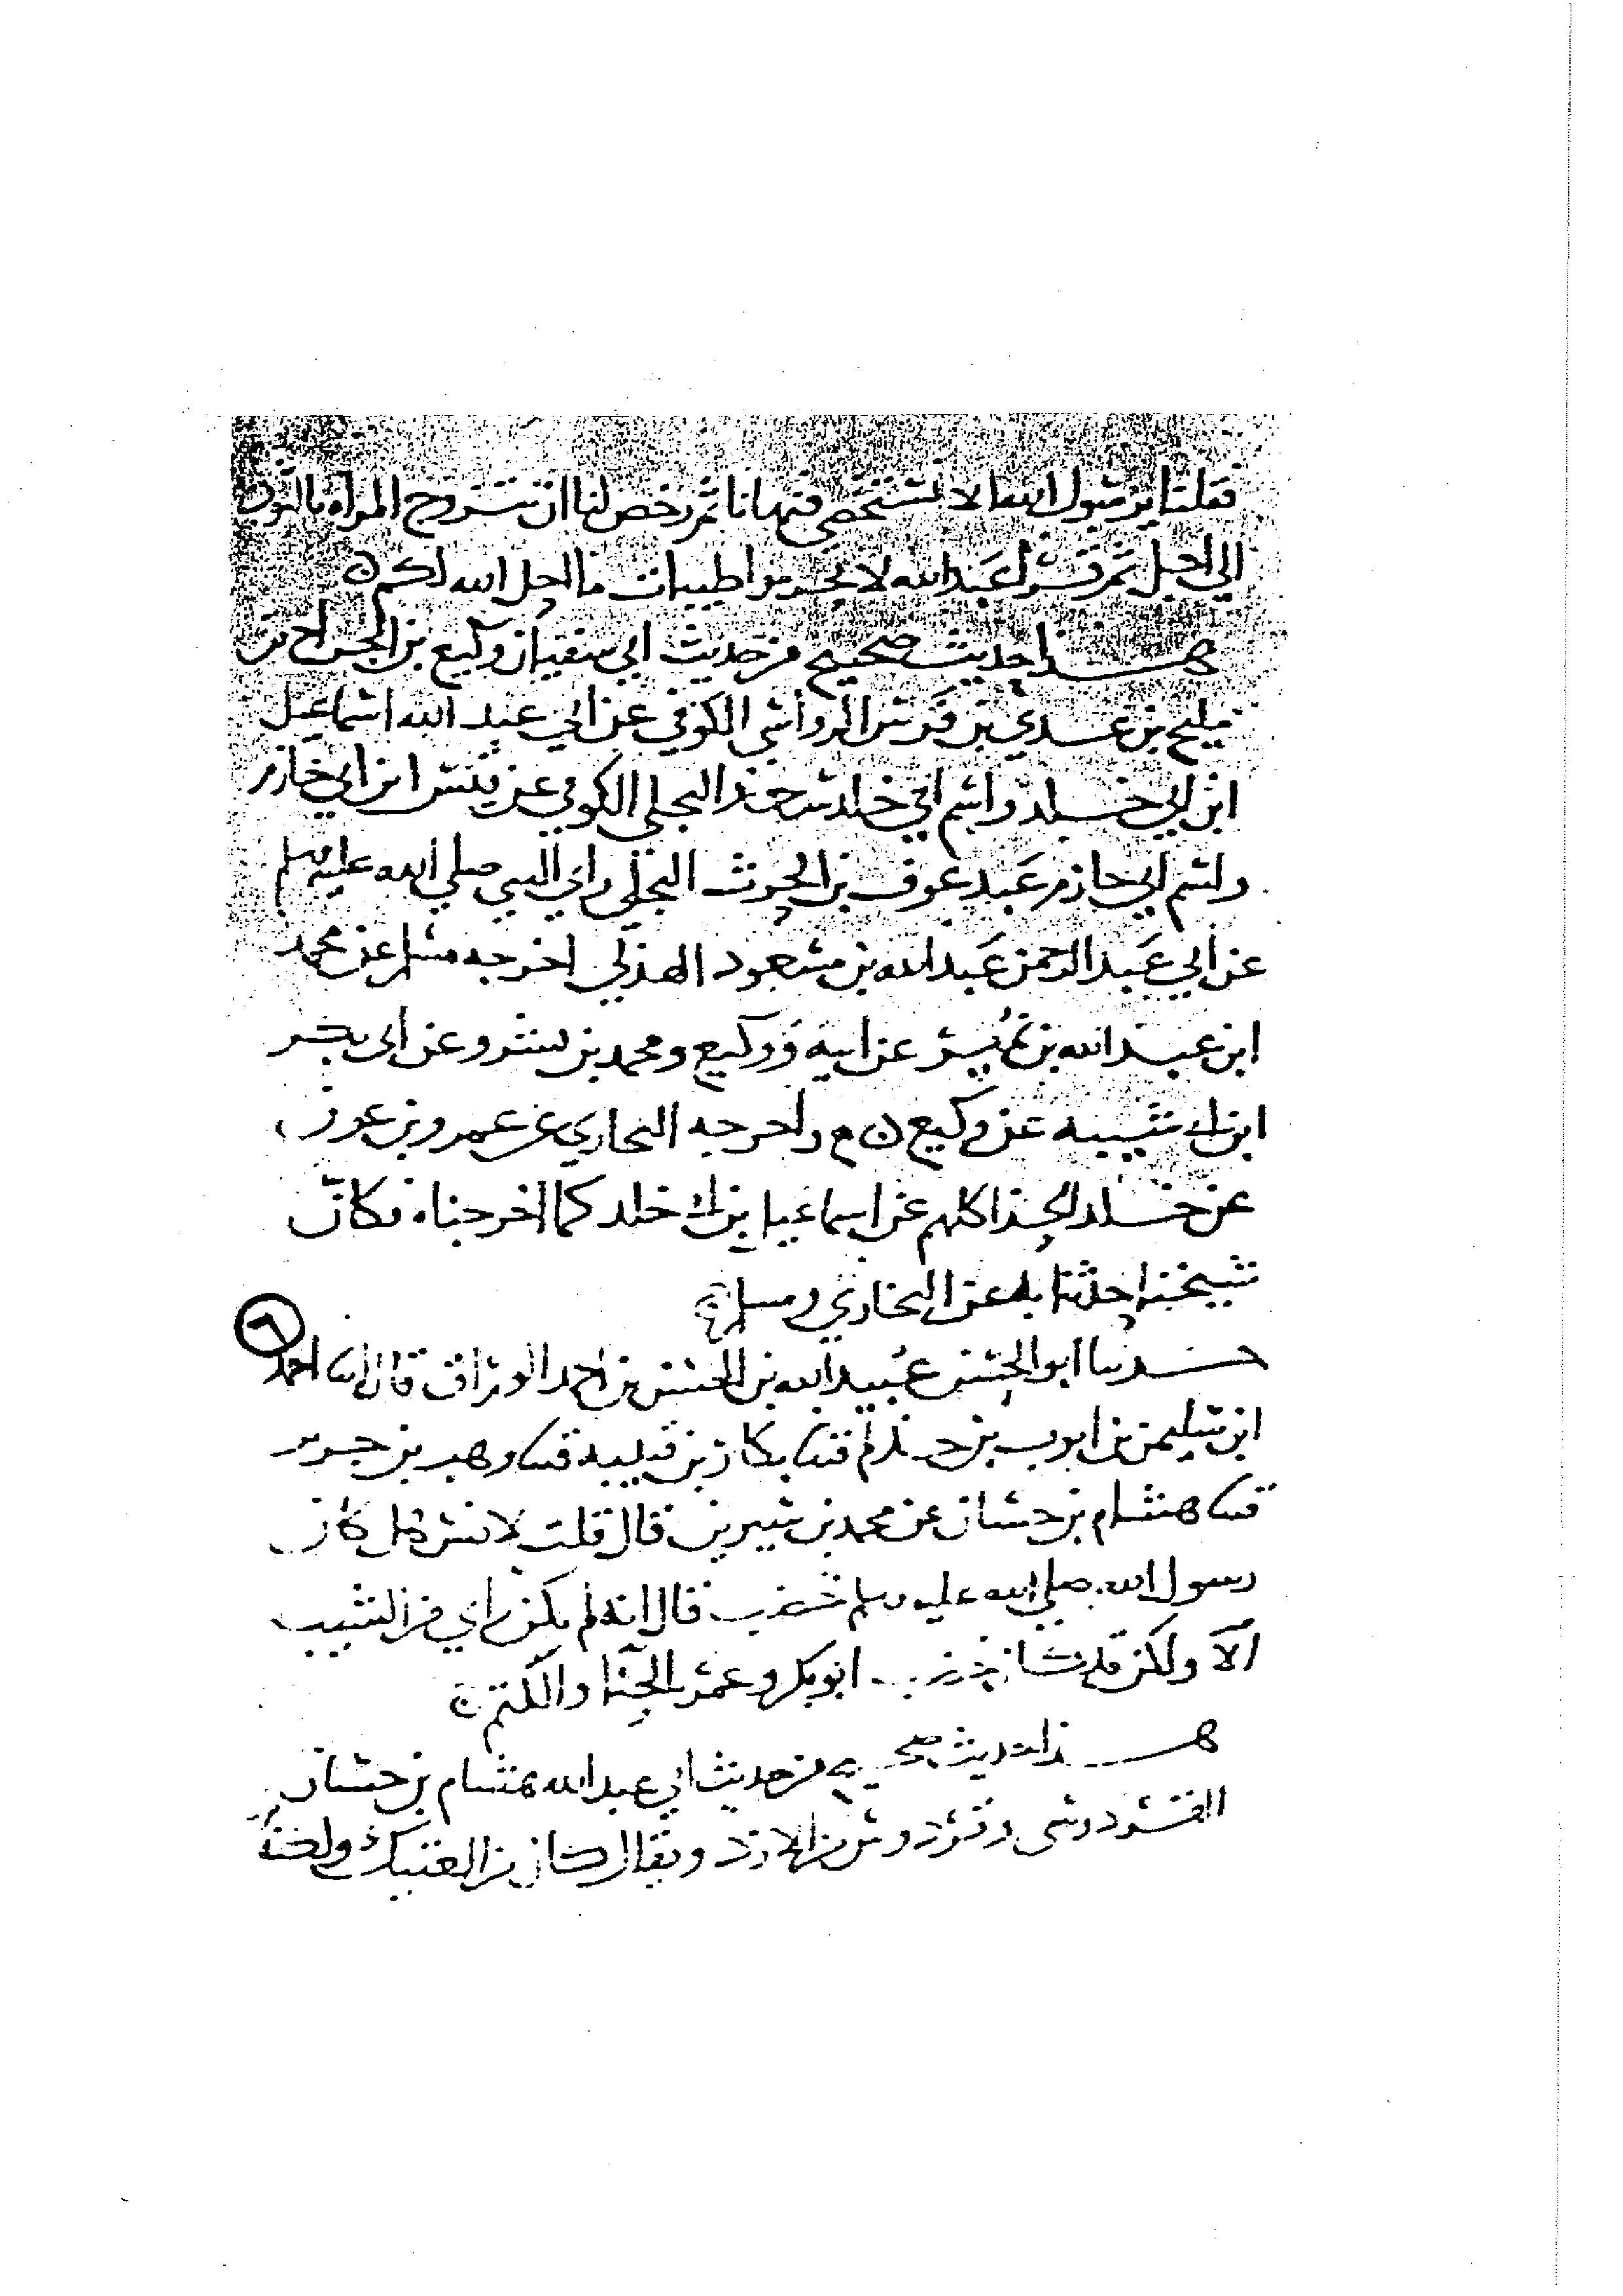 فقلنا يرسول الله الا نستخصي فنهانا ثم رخص لنا ان نتزوج المراه بالثوب
الي اجل ثم قرا عبد الله لا تحرموا طيبات ما احل الله لكم
هذا حديث صحيح من حديث ابي سفيان وكيع بن الجراح بن
مليح بن عدي بن فرس الرواسي الكوفي عن ابي عبد الله اسماعيل
ابن ابي خلد واسم ابي خلد سعد البجلي الكوفي عن قيس ابن ابي حازم
واسم ابي حازم عبد عوف بن الحرث البجلي راي النبي صلي الله عليه وسلم
عن ابي عبد الرحمن عبد الله بن مسعود الهذلي اخرجه مسلم عن محمد
ابن عبد الله بن نمير عن ابيه ووكيع ومحمد بن بشر وعن ابي بكر
ابن ابي شيبه عن وكيع ن م واخرجه البخاري عن عمرو بن عون
عن خلد الحذا كلهم عن اسماعيل بن ابي خلد كما اخرجناه فكان
شيخنا حدثنا به عن البخاري ومسلم
٦
حدثنا ابو الحسن عبيد الله بن الحسن بن احمد الوراق قال انا احمد
ابن سليمن بن ايوب بن حذلم قثنا بكار بن قتيبه قثنا وهب بن جرير
قثنا هشام بن حسان عن محمد بن سيرين قال قلت لانس هل كان
رسول الله صلي الله عليه وسلم خضب قال انه لم يكن راي من الشيب
الا ولكن قد خضب ابو بكر وعمر بالحنا والكتم
هذا حديث صحيح من حديث ابي عبد الله هشام بن حسان
القردوسي وقردوس من الازد ويقال كان من العتيك